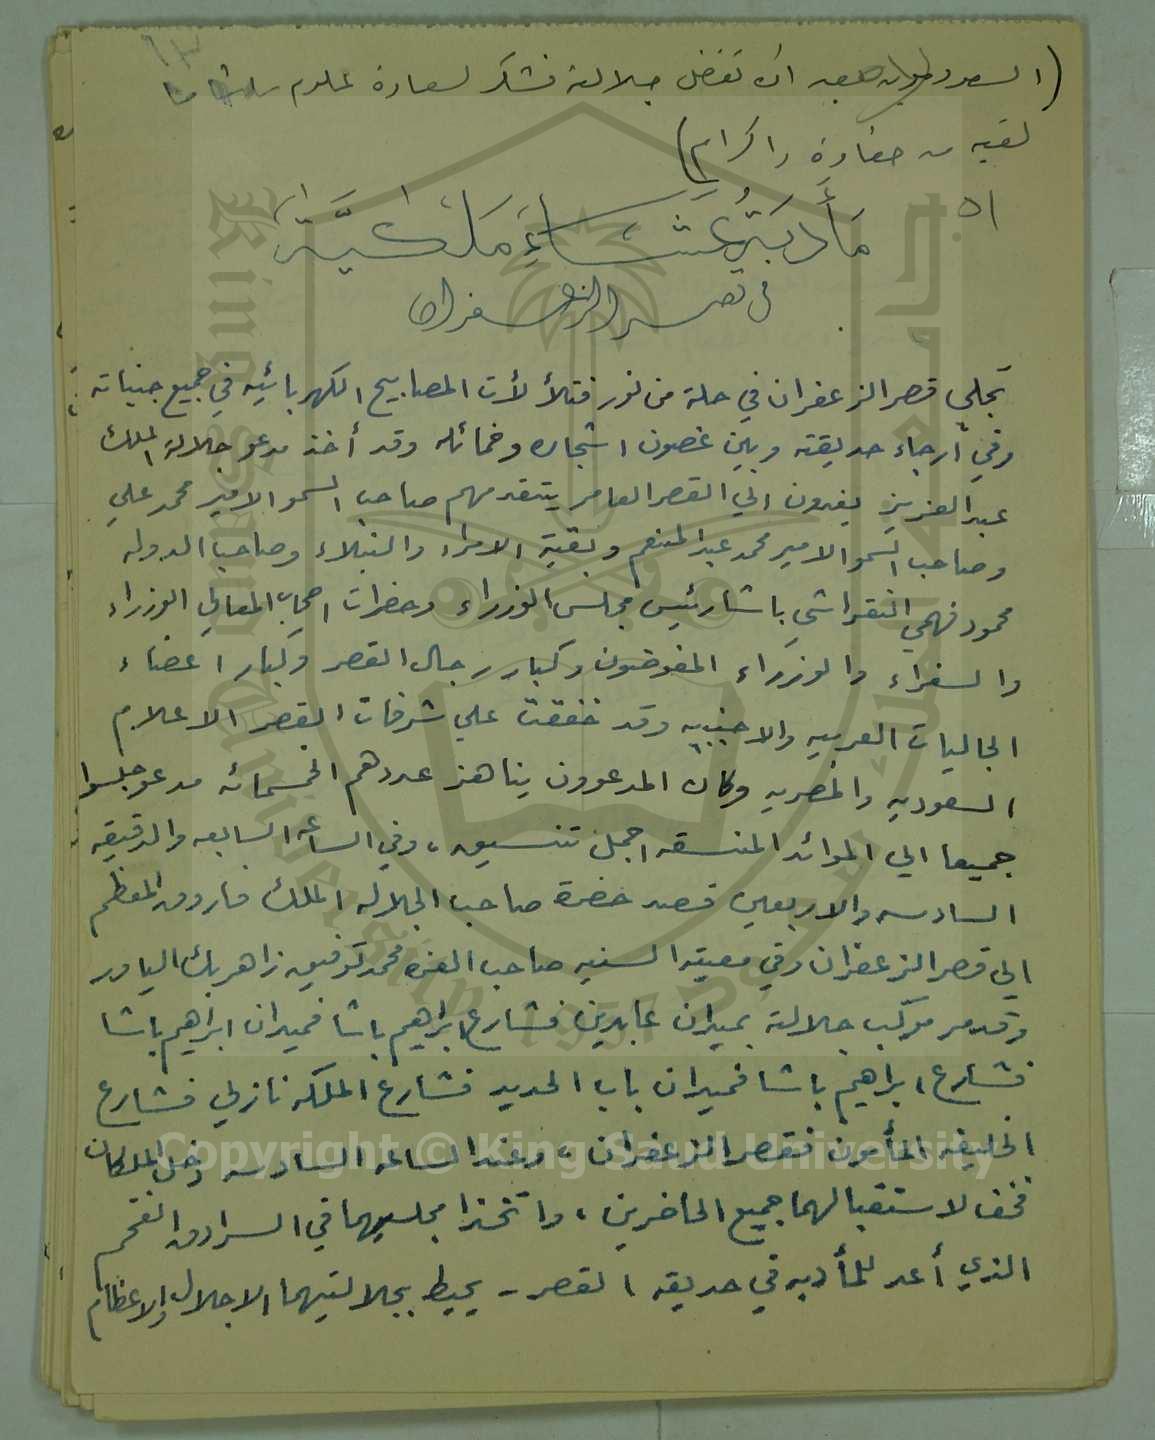 (السعودية بعد ان تفضل جلالته فشكر لسعادة علوم باشا ما
لقيه من حفاوة واكرام)
٥١
مَأْدُبَةُ عَشَاءٍ مَلَكِيَّة
في قصر الزعفران
تجلى قصر الزعفران في حلة من نور فتلألأت المصابيح الكهربائيه في جميع جنباته
وفي أرجاء حديقته وبين غصون اشجاره وخمائله وقد أخذ مدعو جلالة الملك
عبد العزيز يفدون الي القصر العامر يتقدمهم صاحب السمو الامير محمد علي
وصاحب السمو الامير محمد عبد المنعم وبقية الامراء والنبلاء وصاحب الدوله
محمود فهمي النقراشي باشا رئيس مجلس الوزراء وحضرات اصحاب المعالي الوزراء
والسفراء والوزراء المفوضون وكبار رجال القصر وكبار اعضاء
الجاليات العربيه والاجنبيه وقد خفقت علي شرفات القصر الاعلام
السعوديه والمصريه وكان المدعوون يناهز عددهم الخمسمائه مدعو جلسوا
جميعا الي الموائد المنسقه اجمل تنسيق، وفي الساعه السابعه والدقيقه
السادسه والاربعين قصد حضرة صاحب الجلاله الملك فاروق المعظم
الي قصر الزعفران وفي معيته السنيه صاحب العزه محمد توفيق زاهر بك الياور
وقد مر موكب جلالته بميدان عابدين فشارع ابراهيم باشا فميدان ابراهيم باشا
فشارع ابراهيم باشا فميدان باب الحديد فشارع الملكه نازلي فشارع
الخليفه المأمون فقصر الزعفران، وعند الساعه السادسه دخل الملكان
فخف لاستقبالهما جميع الحاضرين، واتخذا مجلسيهما في السرادق الفخم
الذي أعد للمأدبه في حديقه القصر - يحيط بجلالتيهما الاجلال والاعظام
King Saud University
1957
Copyright © King Saud University